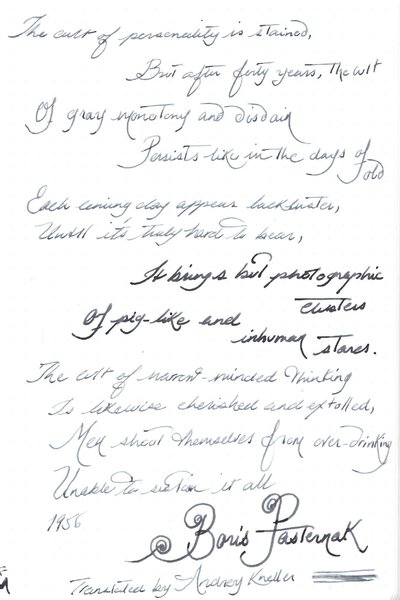 The cult of personality is stained,
But after forty years, the cult
Of gray monotony and disdain
Persists like in the days of
old
Each coming day appears lackluster,
Until it's truly hard to bear,
It brings but photographic
clusters
Of pig-like and
inhuman stares.
The cult of narrow-minded thinking
Is likewise cherished and extolled,
Men shoot themselves from over-drinking
Unable to sustain it all
1956
Boris Pasternak
Translated by Andrey Kneller